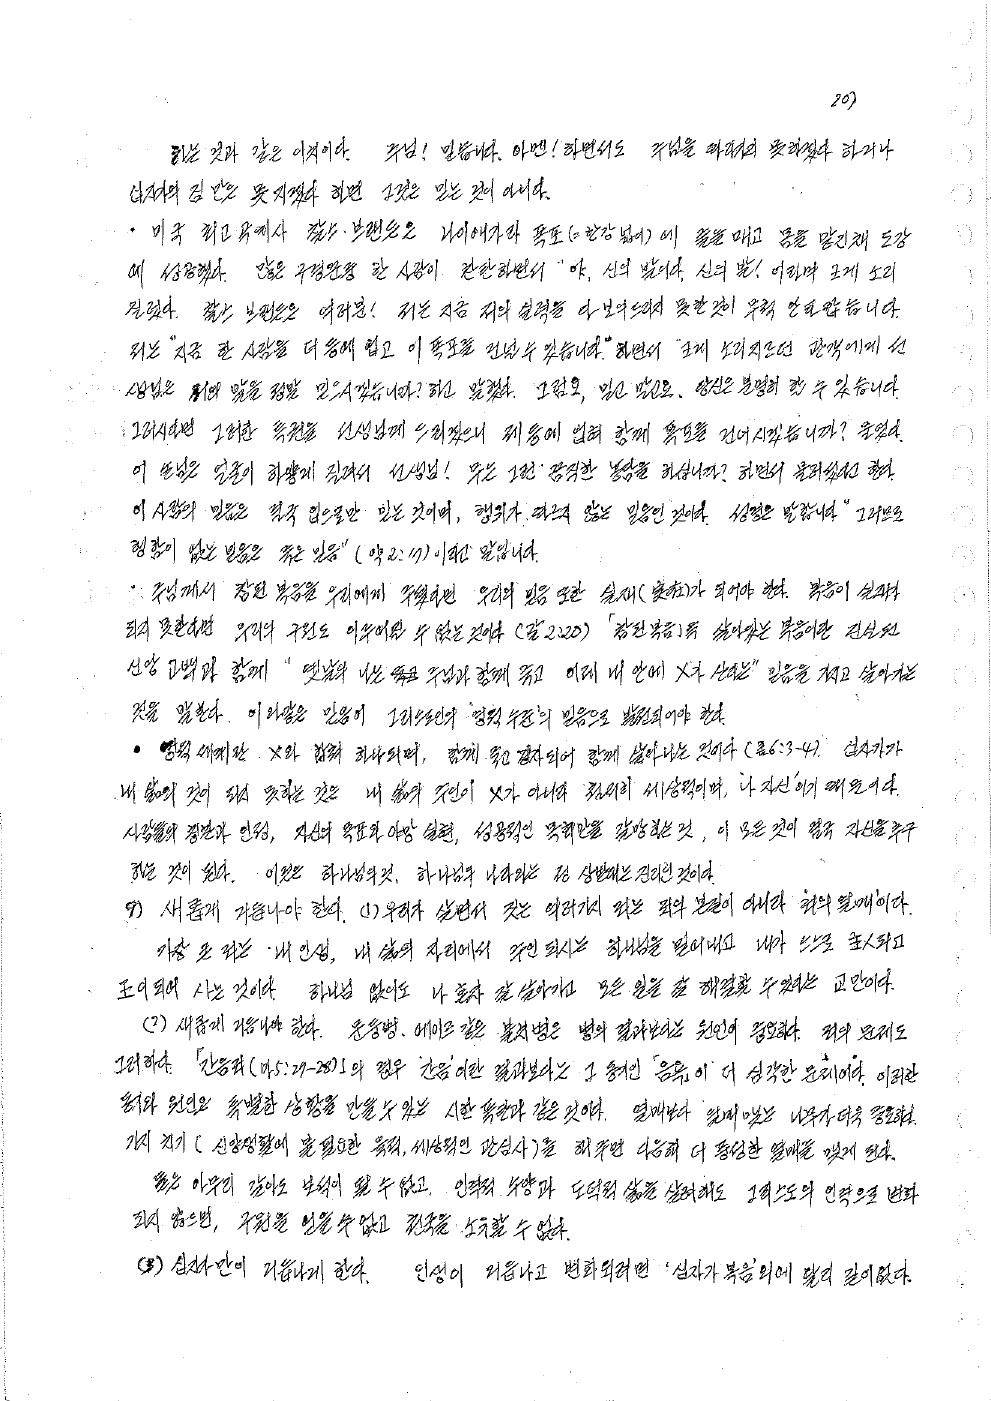 20)
하는 것과 같은 이치이다. 주님! 믿습니다. 아멘! 하면서도 주님을 따라가지 못하겠다 하거나
십자가의 짐 만은 못 지겠다 하면 그것은 믿는 것이 아니다.
• 미국 최고 곡예사 찰스·브랜튼은 나이애가라 폭포(=한강 넓이)에 줄을 매고 몸을 맡긴채 도강
에 성공했다. 많은 구경꾼중 한 사람이 관람하면서 "야, 신의 발이다, 신의 발! 이라며 크게 소리
질렀다. 찰스 브랜튼은 여러분! 저는 지금 저의 실력을 다 보여드리지 못한 것이 무척 안타깝습니다.
저는 "지금 한 사람을 더 등에 업고 이 폭포를 건널 수 있습니다." 하면서 크게 소리지르던 관객에게 선
생님은 저의 말을 정말 믿으시겠습니까? 하고 말했다. 그럼요, 믿고 말고요. 당신은 분명히 할 수 있습니다.
그러시다면 그러한 특권을 선생님께 드리겠으니 제 등에 업혀 함께 폭포를 건너시겠습니까? 물었다.
이 손님은 얼굴이 하얗게 질려서 선생님! 무슨 그런 끔찍한 농담을 하십니까? 하면서 물러섰다고 한다.
이 사람의 믿음은 결국 입으로만 믿는 것이며, 행위가 따르지 않는 믿음인 것이다. 성경은 말합니다 "그러므로
행함이 없는 믿음은 죽은 믿음" (약2:17) 이라고 말입니다.
• 주님께서 참된 복음을 우리에게 주셨다면 우리의 믿음 또한 실재(實在)가 되어야 한다. 복음이 실재가
되지 못한다면 우리의 구원도 이루어질 수 없는 것이다 (갈2:20) 「참된복음」즉 살아있는 복음이란 진실된
신앙 고백과 함께 " 옛날의 나는 주님과 함께 죽고 이제 내 안에 X가 산다는" 믿음을 가지고 살아가는
것을 말한다. 이와같은 믿음이 그리스도인의 '영적 수준'의 믿음으로 발전되어야 한다.
• 영적 세계란 X와 합하여 하나되며, 함께 죽고 장사되어 함께 살아나는 것이다 (롬6:3-4). 십자가가
내 삶의 것이 되지 못하는 것은 내 삶의 주인이 X가 아니라 철저히 세상적이며, '나 자신'이기 때문이다.
사람들의 평판과 인정, 자신의 목표와 야망 실현, 성공적인 목회만을 갈망하는 것, 이 모든 것이 결국 자신을 추구
하는 것이 된다. 이것은 하나님의것, 하나님의 나라와는 상반되는 진리인 것이다.
9) 새롭게 거듭나야 한다. (1) 우리가 살면서 짓는 여러가지 죄는 죄의 본질이 아니라 '죄의 열매'이다.
가장 큰 죄는 내 인생, 내 삶의 자리에서 주인 되시는 하나님을 밀어내고 내가 스스로 主人되고
王이 되어 사는 것이다. 하나님 없이도 나 혼자 잘 살아가고 모든 일을 잘 해결할 수 있다는 교만이다.
(2) 새롭게 거듭나야 한다. 문둥병, 에이즈 같은 불치병은 병의 결과보다는 원인이 중요하다. 죄의 문제도
그러하다. 「간음죄(마5:27-28)」의 경우 '간음'이란 결과보다는 그 동기인 「음욕」이 더 심각한 문제이다. 이러한
동기와 원인은 특별한 상황을 만들 수 있는 시한 폭탄과 같은 것이다. 열매보다 열매 맺는 나무가 더욱 중요하다.
가지 치기 ( 신앙생활에 불필요한 욕심, 세상적인 관심사)를 해주면 다음해 더 풍성한 열매를 맺게 된다.
돌은 아무리 갈아도 보석이 될 수 없고, 인격적 수양과 도덕적 삶을 살려해도 그리스도의 인격으로 변화
되지 않으면, 구원을 얻을 수 없고 천국을 소유할 수 없다.
(3) 십자가만이 거듭나게 한다. 인생이 거듭나고 변화되려면 '십자가 복음'외에 달리 길이 없다.